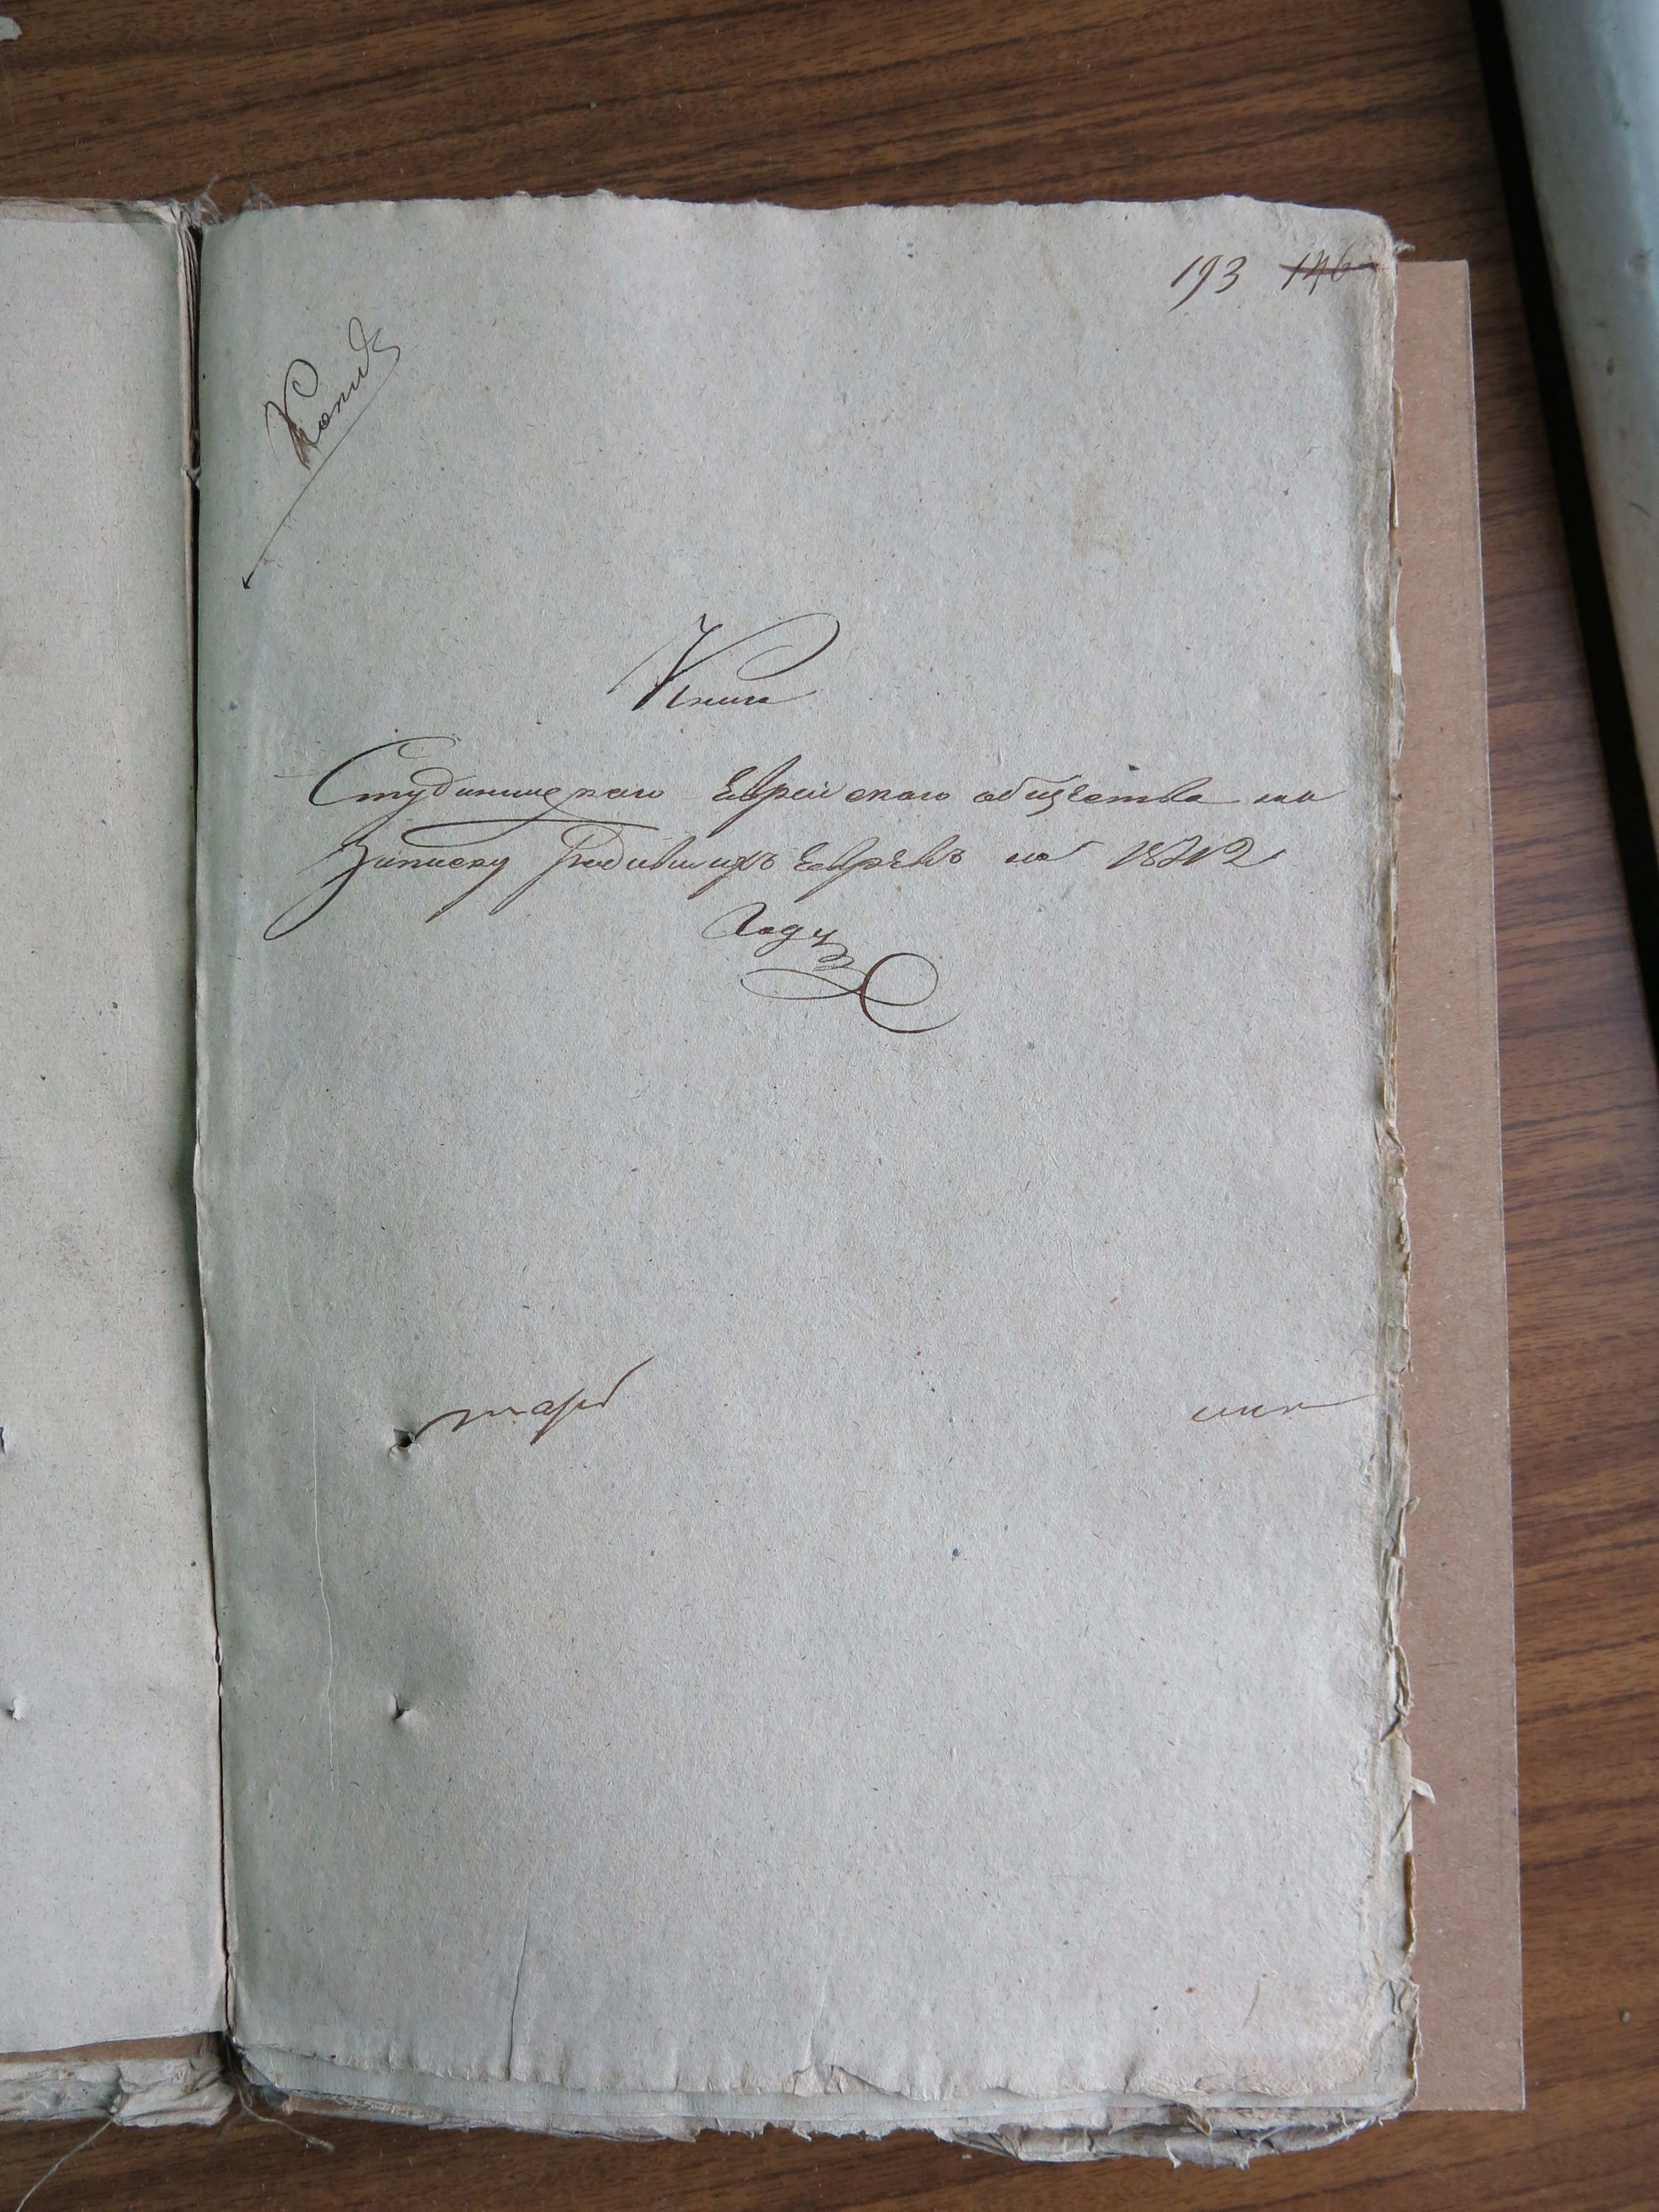 193 146
Копия
Книга
Студиницкаго Еврейскаго общества на
Записку Родившихъ Евреевъ на 1842
Годъ